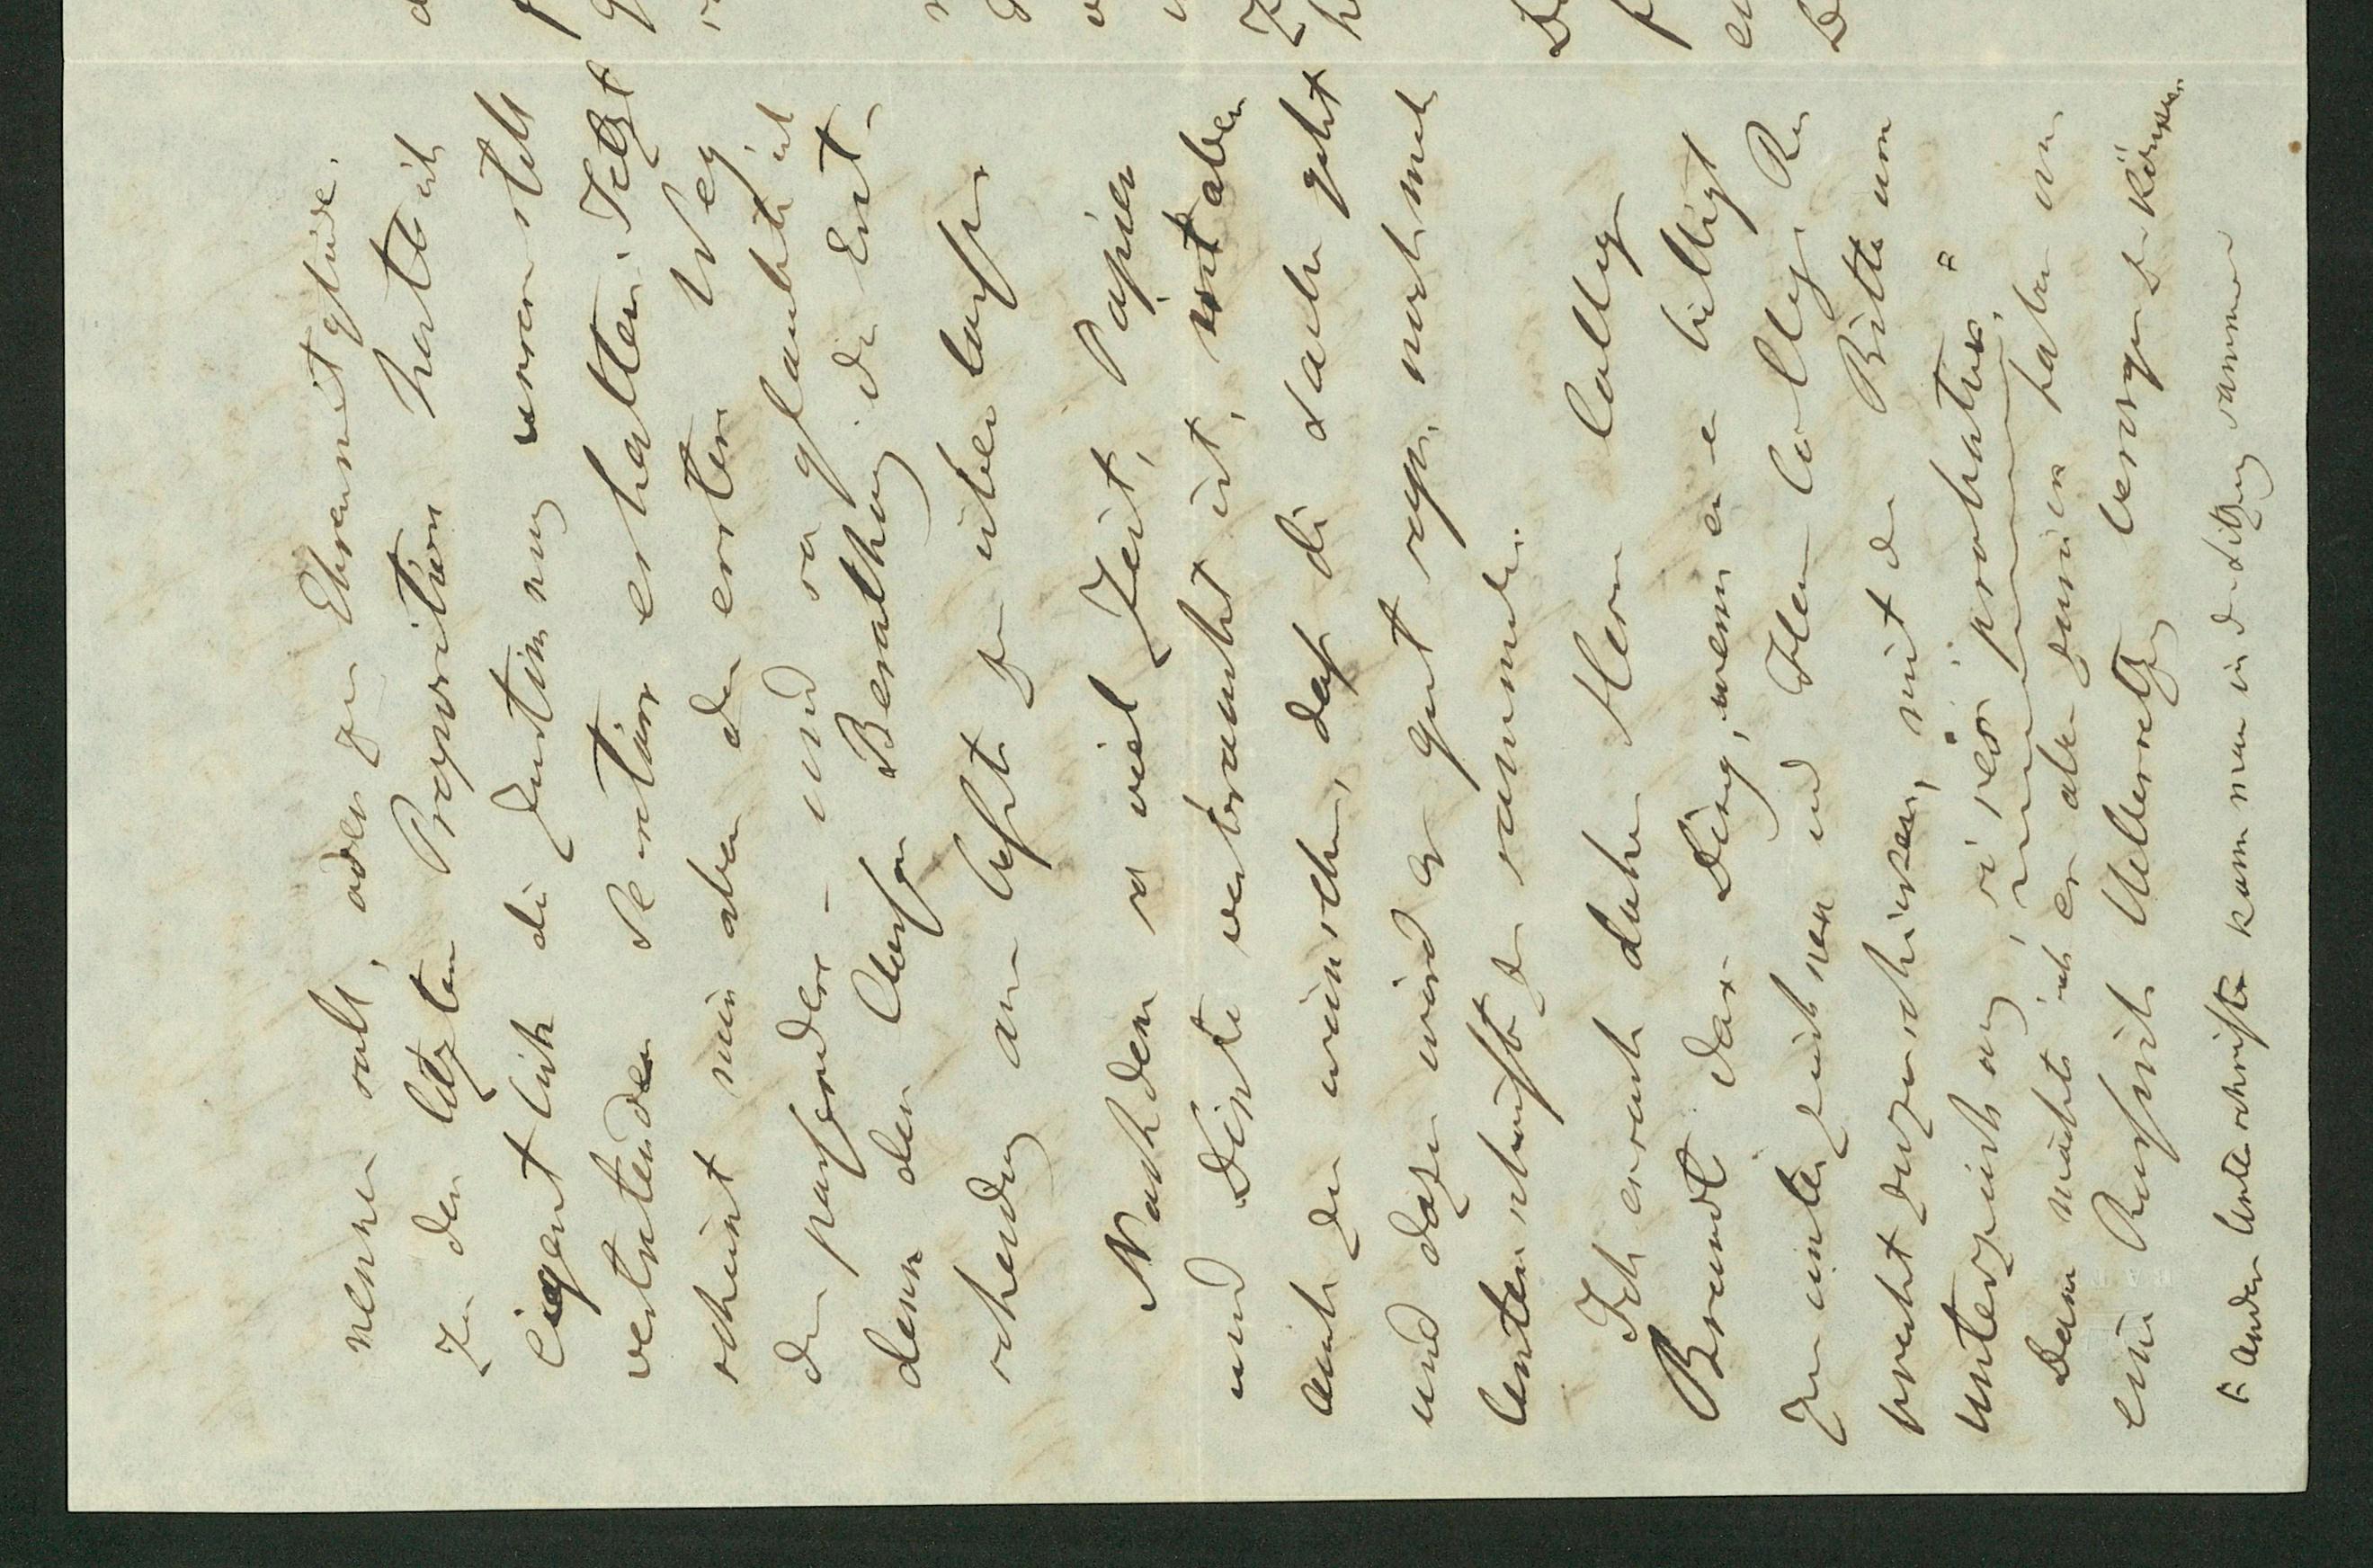 nennen soll, oder zu Ehrenmitgliede.
Zu der letzten Proposition hatte ich
eigentlich die Zustimmung unseres stell
vertretenden Sekretärs erhalten. Jetzt
scheint mir aber der erstere Weg
der passendere – und so glaubte ich
denn der Classe Berathung die Ent-
scheidung am besten zu überlassen
Nachdem so viel Zeit, Papier
und Dinte verbraucht ist, ist aber
auch zu wünschen, dass die Sache geht
und dazu wird es gut sein, noch mehr
Unterschriften zu sammeln.
Ich ersuche daher Herrn Collegen
Brandt das Ding, wenn er es billigt
zu unterzeichnen und Herrn Collegen Ru
precht zuzuschicken, mit der Bitte um
Unterzeichnung, si res probatur.
Dann möchte ich es aber zurück haben um
eine Russische Uebersetzung besorgen zu können
Andere Unterschriften kann man in der Sitzung sammeln